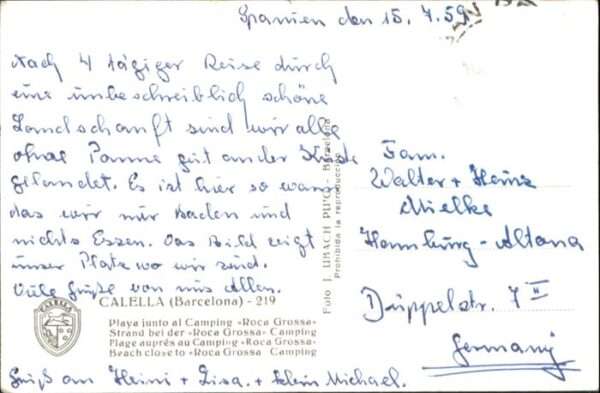 Spanien den 15. 7. 59
Nach 4 tägiger Reise durch
eine unbeschreiblich schöne
Landschanft sind wir alle
ohne Panne gut an der Küste
gelandet. Es ist hier so warm
das wir nur Baden und
nichts Essen. Das Bild zeigt
unser Platz wo wir sind.
Viele Grüße von uns Allen.
CALELLA (Barcelona) - 219
CALELLA
Playa junto al Camping «Roca Grossa»
Strand bei der «Roca Grossa» Camping
Plage auprés au Camping «Roca Grossa»
Beach close to «Roca Grossa» Camping
Gruß an Heini + Lisa. + klein Michael.
Foto J. UMBACH Barcelona
Prohibida la reproducción
Fam.
Walter + Heinz
Mielke
Hamburg - Altona
Düppelstr. 7 II
Germany